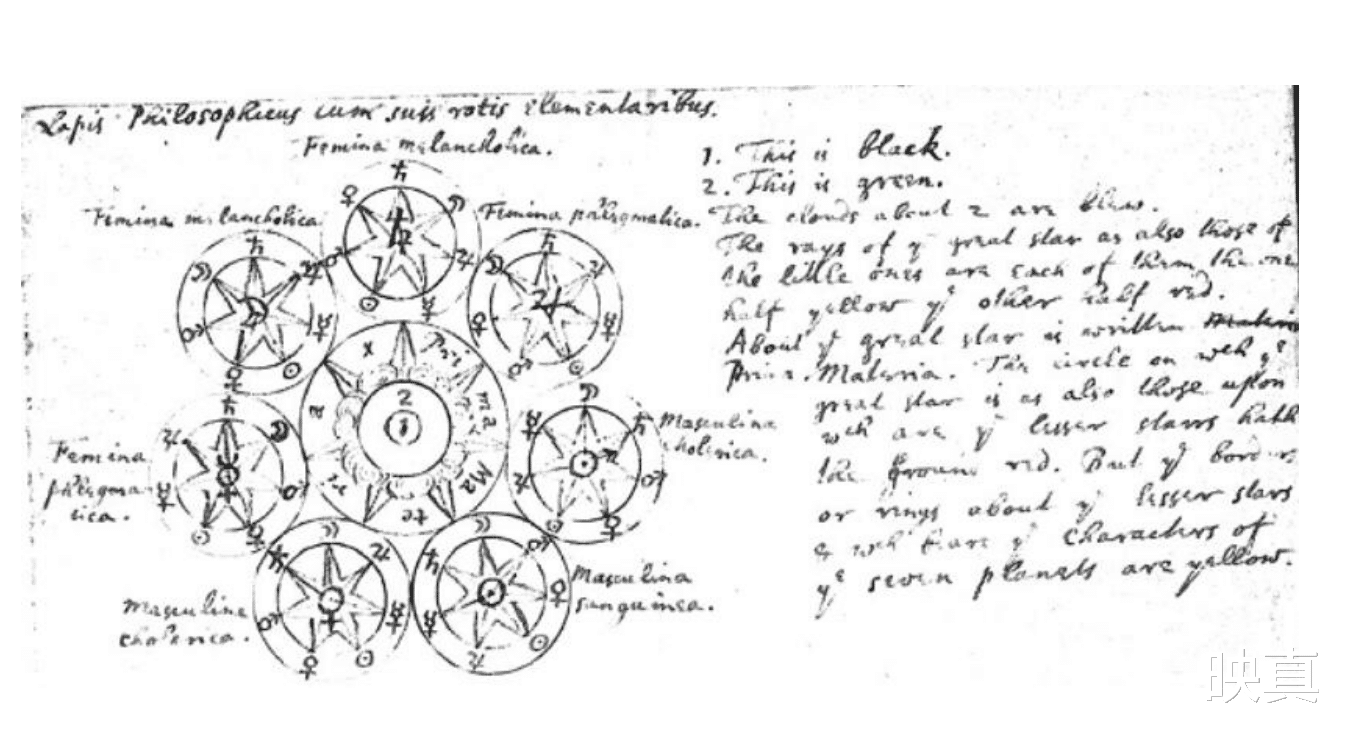 Lapis Philosophicus cum suis rotis elementaribus.
Femina melancholica.
Femina melancholica
Femina phlegmatica.
Femina
phlegma
tica.
Masculina
cholerica.
Masculina
cholerica.
Masculina
sanguinea.
Pri ma Ma te ri
2
1
1. This is black.
2. This is green.
The clouds about 2 are blew.
The rays of yᵉ great star as also those of
the little ones are each of them the one
half yellow yᵉ other half red.
About yᵉ great star is written
Prima Materia. The circle on wch yᵉ
great star is as also those upon
wch are yᵉ lesser starrs hath
the ground red. But yᵉ borders
or rings about yᵉ lesser stars
& wch beare yᵉ characters of
yᵉ seven planets are yellow.
映真